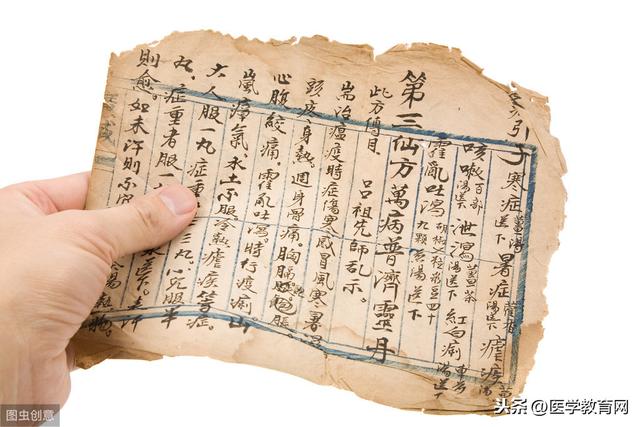 引子
寒症薑湯送下 暑症
湯送下 瘧疾
咳嗽百部湯送下 泄瀉薑茶湯送下 紅白痢
湯送下
霍亂吐瀉胡椒 菉豆四十九顆 湯送下
第三仙方萬病普濟靈丹
此方傳自 呂祖先師乩示
耑治瘟疫時症傷寒感冒風寒暑
頭疼身熱週身骨痛胸膈飽脹
心腹絞痛霍亂吐瀉時行疫痢山
嵐瘴氣水土不服冷熱瘧疾等症
大人服一丸症重
丸症重者服一 三丸 服半
則愈如未汗則不宜 汗
图虫创意
头条@医学教育网